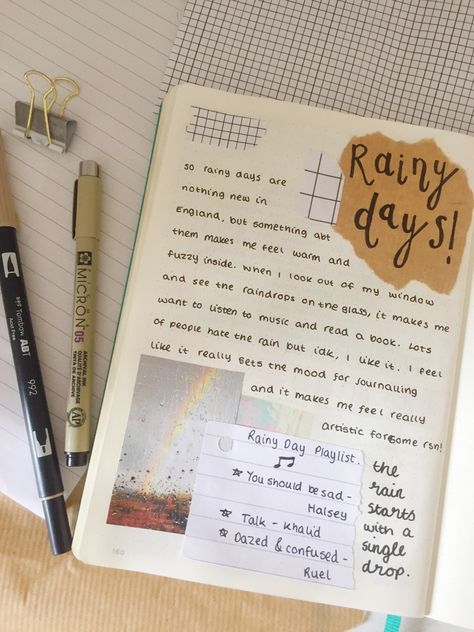 Rainy
days!
so rainy days are
nothing new in
England, but something abt
them makes me feel warm and
fuzzy inside. When I look out of my window
and see the raindrops on the glass, it makes me
want to listen to music and read a book. Lots
of people hate the rain but idk, I like it. I feel
like it really sets the mood for journalling
and it makes me feel really
artistic for some rsn!
Rainy Day Playlist.
You should be sad -
Halsey
Talk - Khalid
Dazed & confused -
Ruel
the
rain
starts
with a
single
drop.
160
MICRON 05
ARCHIVAL INK
Tombow
ABT
992